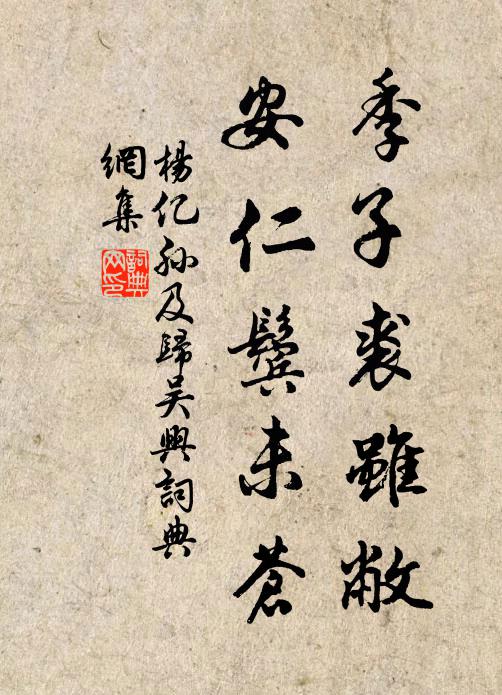 季子裘雖敝
安仁鬢未蒼
楊亿孫及歸吴興詞典
網集
詞典
网印